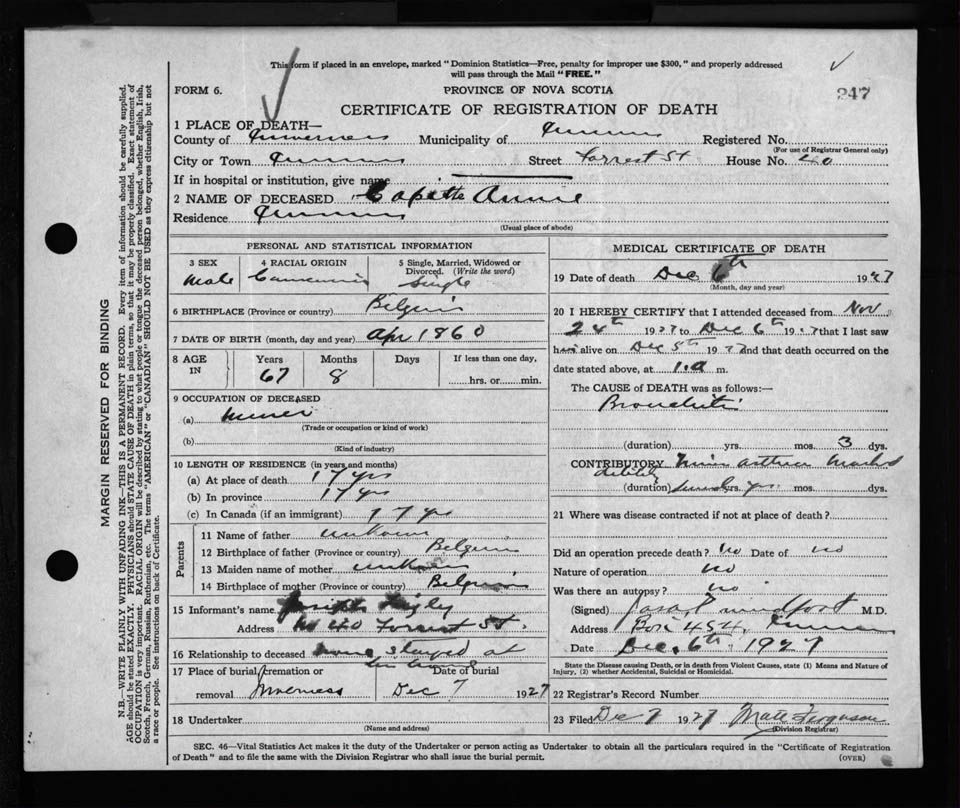 This form if placed in an envelope, marked "Dominion Statistics—Free, penalty for improper use $300," and properly addressed
will pass through the Mail "FREE."
FORM 6.
PROVINCE OF NOVA SCOTIA
247
CERTIFICATE OF REGISTRATION OF DEATH
1 PLACE OF DEATH—
County of Inverness Municipality of Registered No.
(For use of Registrar General only)
City or Town Street Forrest St House No. 40
If in hospital or institution, give name
2 NAME OF DECEASED Capette Annie
Residence
(Usual place of abode)
PERSONAL AND STATISTICAL INFORMATION
3 SEX 4 RACIAL ORIGIN 5 Single, Married, Widowed or Divorced. (Write the word)
Male Single
6 BIRTHPLACE (Province or country) Belgium
7 DATE OF BIRTH (month, day and year) Apr 1860
8 AGE IN Years Months Days If less than one day,
67 8 hrs. or min.
9 OCCUPATION OF DECEASED
(a) Miner
(Trade or occupation or kind of work)
(b)
(Kind of industry)
10 LENGTH OF RESIDENCE (in years and months)
(a) At place of death 17 yrs
(b) In province 17 yrs
(c) In Canada (if an immigrant) 17 yrs
Parents
11 Name of father unknown
12 Birthplace of father (Province or country) Belgium
13 Maiden name of mother unknown
14 Birthplace of mother (Province or country) Belgium
15 Informant's name Joseph
Address 40 Forrest St.
16 Relationship to deceased none stayed at
17 Place of burial, cremation or removal Inverness Date of burial Dec 7 1927
18 Undertaker
(Name and address)
MEDICAL CERTIFICATE OF DEATH
19 Date of death Dec. 6th 1927
(Month, day and year)
20 I HEREBY CERTIFY that I attended deceased from Nov
24th 1927 to Dec 6th 1927 that I last saw
him alive on Dec 5th 1927 and that death occurred on the
date stated above, at 1.a m.
The CAUSE of DEATH was as follows:—
Bronchitis
(duration) yrs. mos. 3 dys.
CONTRIBUTORY
debility
(duration) yrs. mos. dys.
21 Where was disease contracted if not at place of death?
Did an operation precede death? no Date of no
Nature of operation no
Was there an autopsy? no
(Signed) M.D.
Address Box 454,
Date Dec. 6th, 1927
State the Disease causing Death, or in death from Violent Causes, state (1) Means and Nature of
Injury, (2) whether Accidental, Suicidal or Homicidal.
22 Registrar's Record Number
23 Filed Dec 7 1927 Matt Ferguson
(Division Registrar)
SEC. 46—Vital Statistics Act makes it the duty of the Undertaker or person acting as Undertaker to obtain all the particulars required in the "Certificate of Registration
of Death" and to file the same with the Division Registrar who shall issue the burial permit.
(OVER)
MARGIN RESERVED FOR BINDING
N.B.—WRITE PLAINLY WITH UNFADING INK—THIS IS A PERMANENT RECORD. Every item of information should be carefully supplied.
AGE should be stated EXACTLY. PHYSICIANS should STATE CAUSE OF DEATH in plain terms, so that it may be properly classified. Exact statement of
OCCUPATION is very important. RACIAL ORIGIN will be described by stating to what people or tongue the deceased person belonged, whether English, Irish,
Scotch, French, German, Russian, Ruthenian, etc. The terms "AMERICAN" or "CANADIAN" SHOULD NOT BE USED as they express citizenship but not
a race or people. See instructions on back of Certificate.